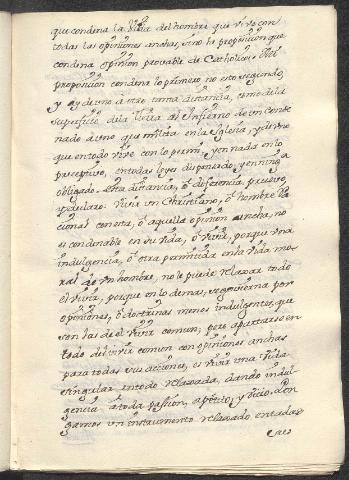 que condena la Vida del hombre que vive con
todas las opiniones anchas, sino la proposicion que
condena opinion provable de Catholicos: Mi
proposicion condena lo primero no lo segundo,
y ay de uno a otro tanta distancia, como de la
superficie de la tierra al Infierno de un Conde
nado à uno que milita en la Iglesia, y de uno
que en todo vive con lo permi, y en nada con lo
preceptivo, en todas leyes dispensado, y en ning.a
obligado. Esta distancia, ò diferencia preciso
es declararlo: Vivir un Christiano, ò hombre Ra
cional con esta, ò aquella opinion ancha, no
es condenable en su vida, ò vivir, porque una
indulgencia, ò otra permitida en la Vida mo
ral de un hombre, no le puede relaxar todo
el vivir, porque en lo demas, se govierna por
opiniones, ò doctrinas menos indulgentes, que
son las de el vivir comun; pero apartarse en
todo del vivir comun con opiniones anchas
para todas sus acciones, es vivir una Vida
singular en todo relaxada, dando indul-
gencia à toda passion, apetito, y vicio. Pon
gamos un instrumento relaxado en todas